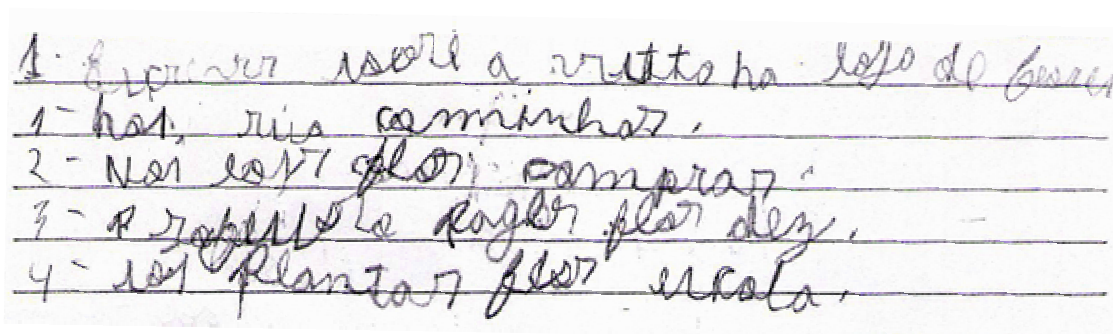 1. Escrever sobre a visita na loja de
1 - Nós, rua caminhar.
2 - Nós loja flor comprar.
3 - Professora pagar flor dez.
4 - nós plantar flor escola.